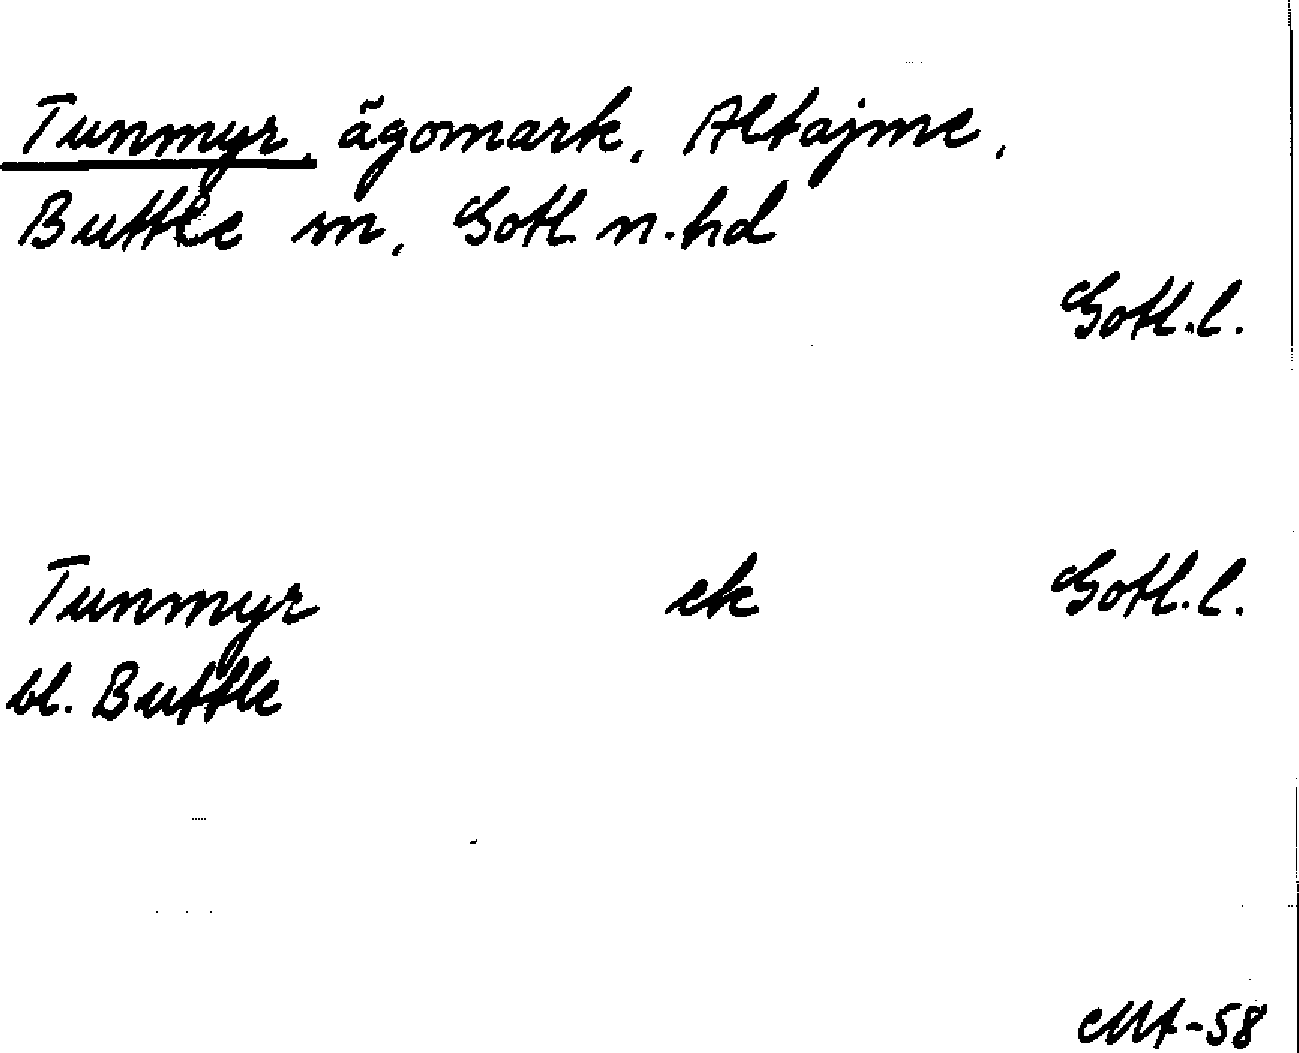 Tunmyr, ägomark, Altajme,
Buttle sn, Gotl n. hd
Gotl. l.
Tunmyr ek Gotl. l.
bl. Buttle